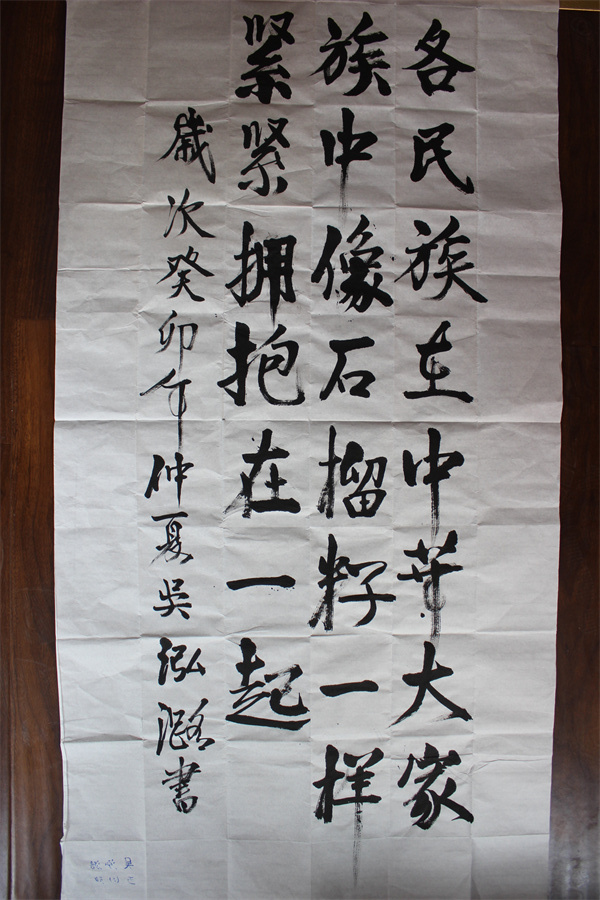 各民族在中华大家
族中像石榴籽一样
紧紧拥抱在一起
歲次癸卯年仲夏吳泓潞書